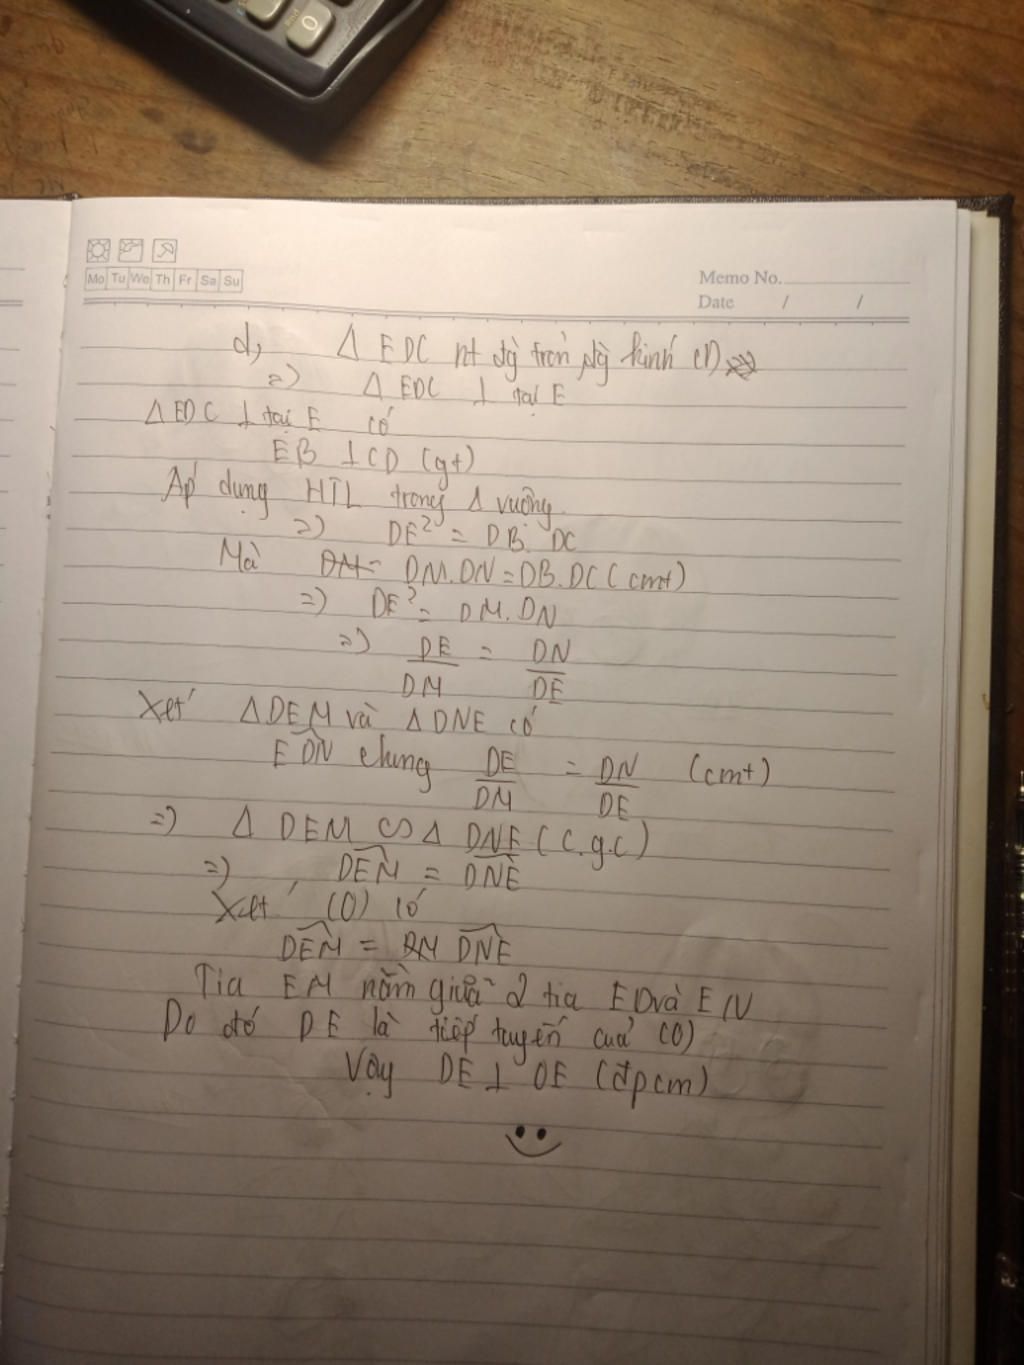 0
Mo Tu We Th Fr Sa Su
Memo No.
Date / /
d, Δ EDC nt đg tròn đg kính CD
=) Δ EDC ⊥ tại E
Δ EDC ⊥ tại E có
EB ⊥ CD (gt)
Áp dụng HTL trong Δ vuông
=) DE² = DB. DC
Mà DM = DM.DN = DB.DC (cmt)
=) DE² = DM. DN
=) DE/DM = DN/DE
Xét ΔDEM và ΔDNE có
EDN chung DE/DM = DN/DE (cmt)
=) Δ DEM ∽ Δ DNE (C.g.C)
=) DEM = DNE
Xét (O) có
DEM = DNE
Tia EM nằm giữa 2 tia ED và EN
Do đó DE là tiếp tuyến của (O)
Vậy DE ⊥ OE (đpcm)